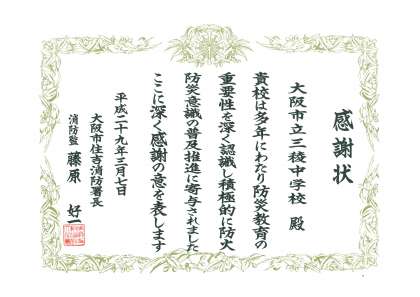 感謝状
大阪市立三稜中学校 殿
貴校は多年にわたり防災教育の
重要性を深く認識し積極的に防火
防災意識の普及推進に寄与されました
ここに深く感謝の意を表します
平成二十九年三月七日
大阪市住吉消防署長
消防監 藤原 好一